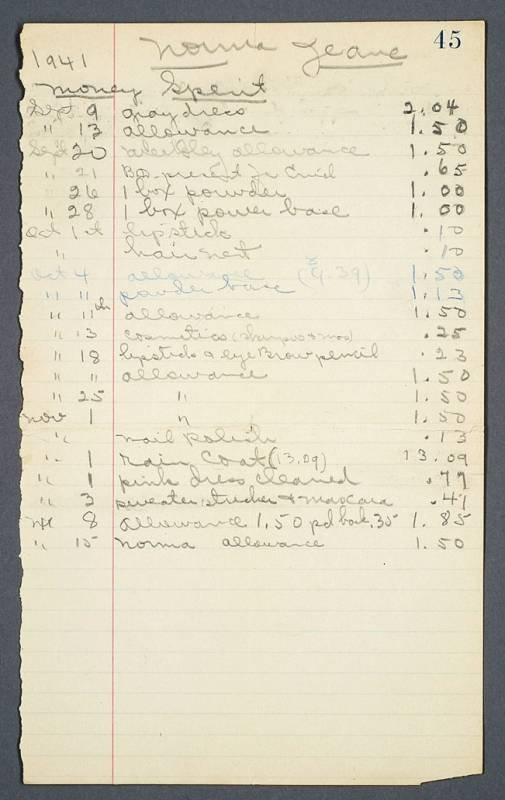 45
Norma Jeane
1941
Money Spent
Sept 9 gray dress 2.04
" 13 allowance 1.50
Sept 20 weekley allowance 1.50
" 21 B.D. present for Enid .65
26 1 box powder 1.00
" 28 1 box power base 1.00
Oct 1st lipstick .10
" hair net .10
Oct 4 allowance (9.39) 1.50
" " powder base 1.13
" 11th allowance 1.50
" 13 cosmetics (shampoo & .25
" 18 lipstick & eye Brow pencil .23
" " allowance 1.50
" 25 " 1.50
Nov 1 " 1.50
" nail polish .13
" 1 Rain Coat (13.09) 13.09
" 1 pink dress cleaned .77
" 3 sweater & mascara .47
8 allowance 1,50 pd back, 35 1.85
" 15 Norma allowance 1.50